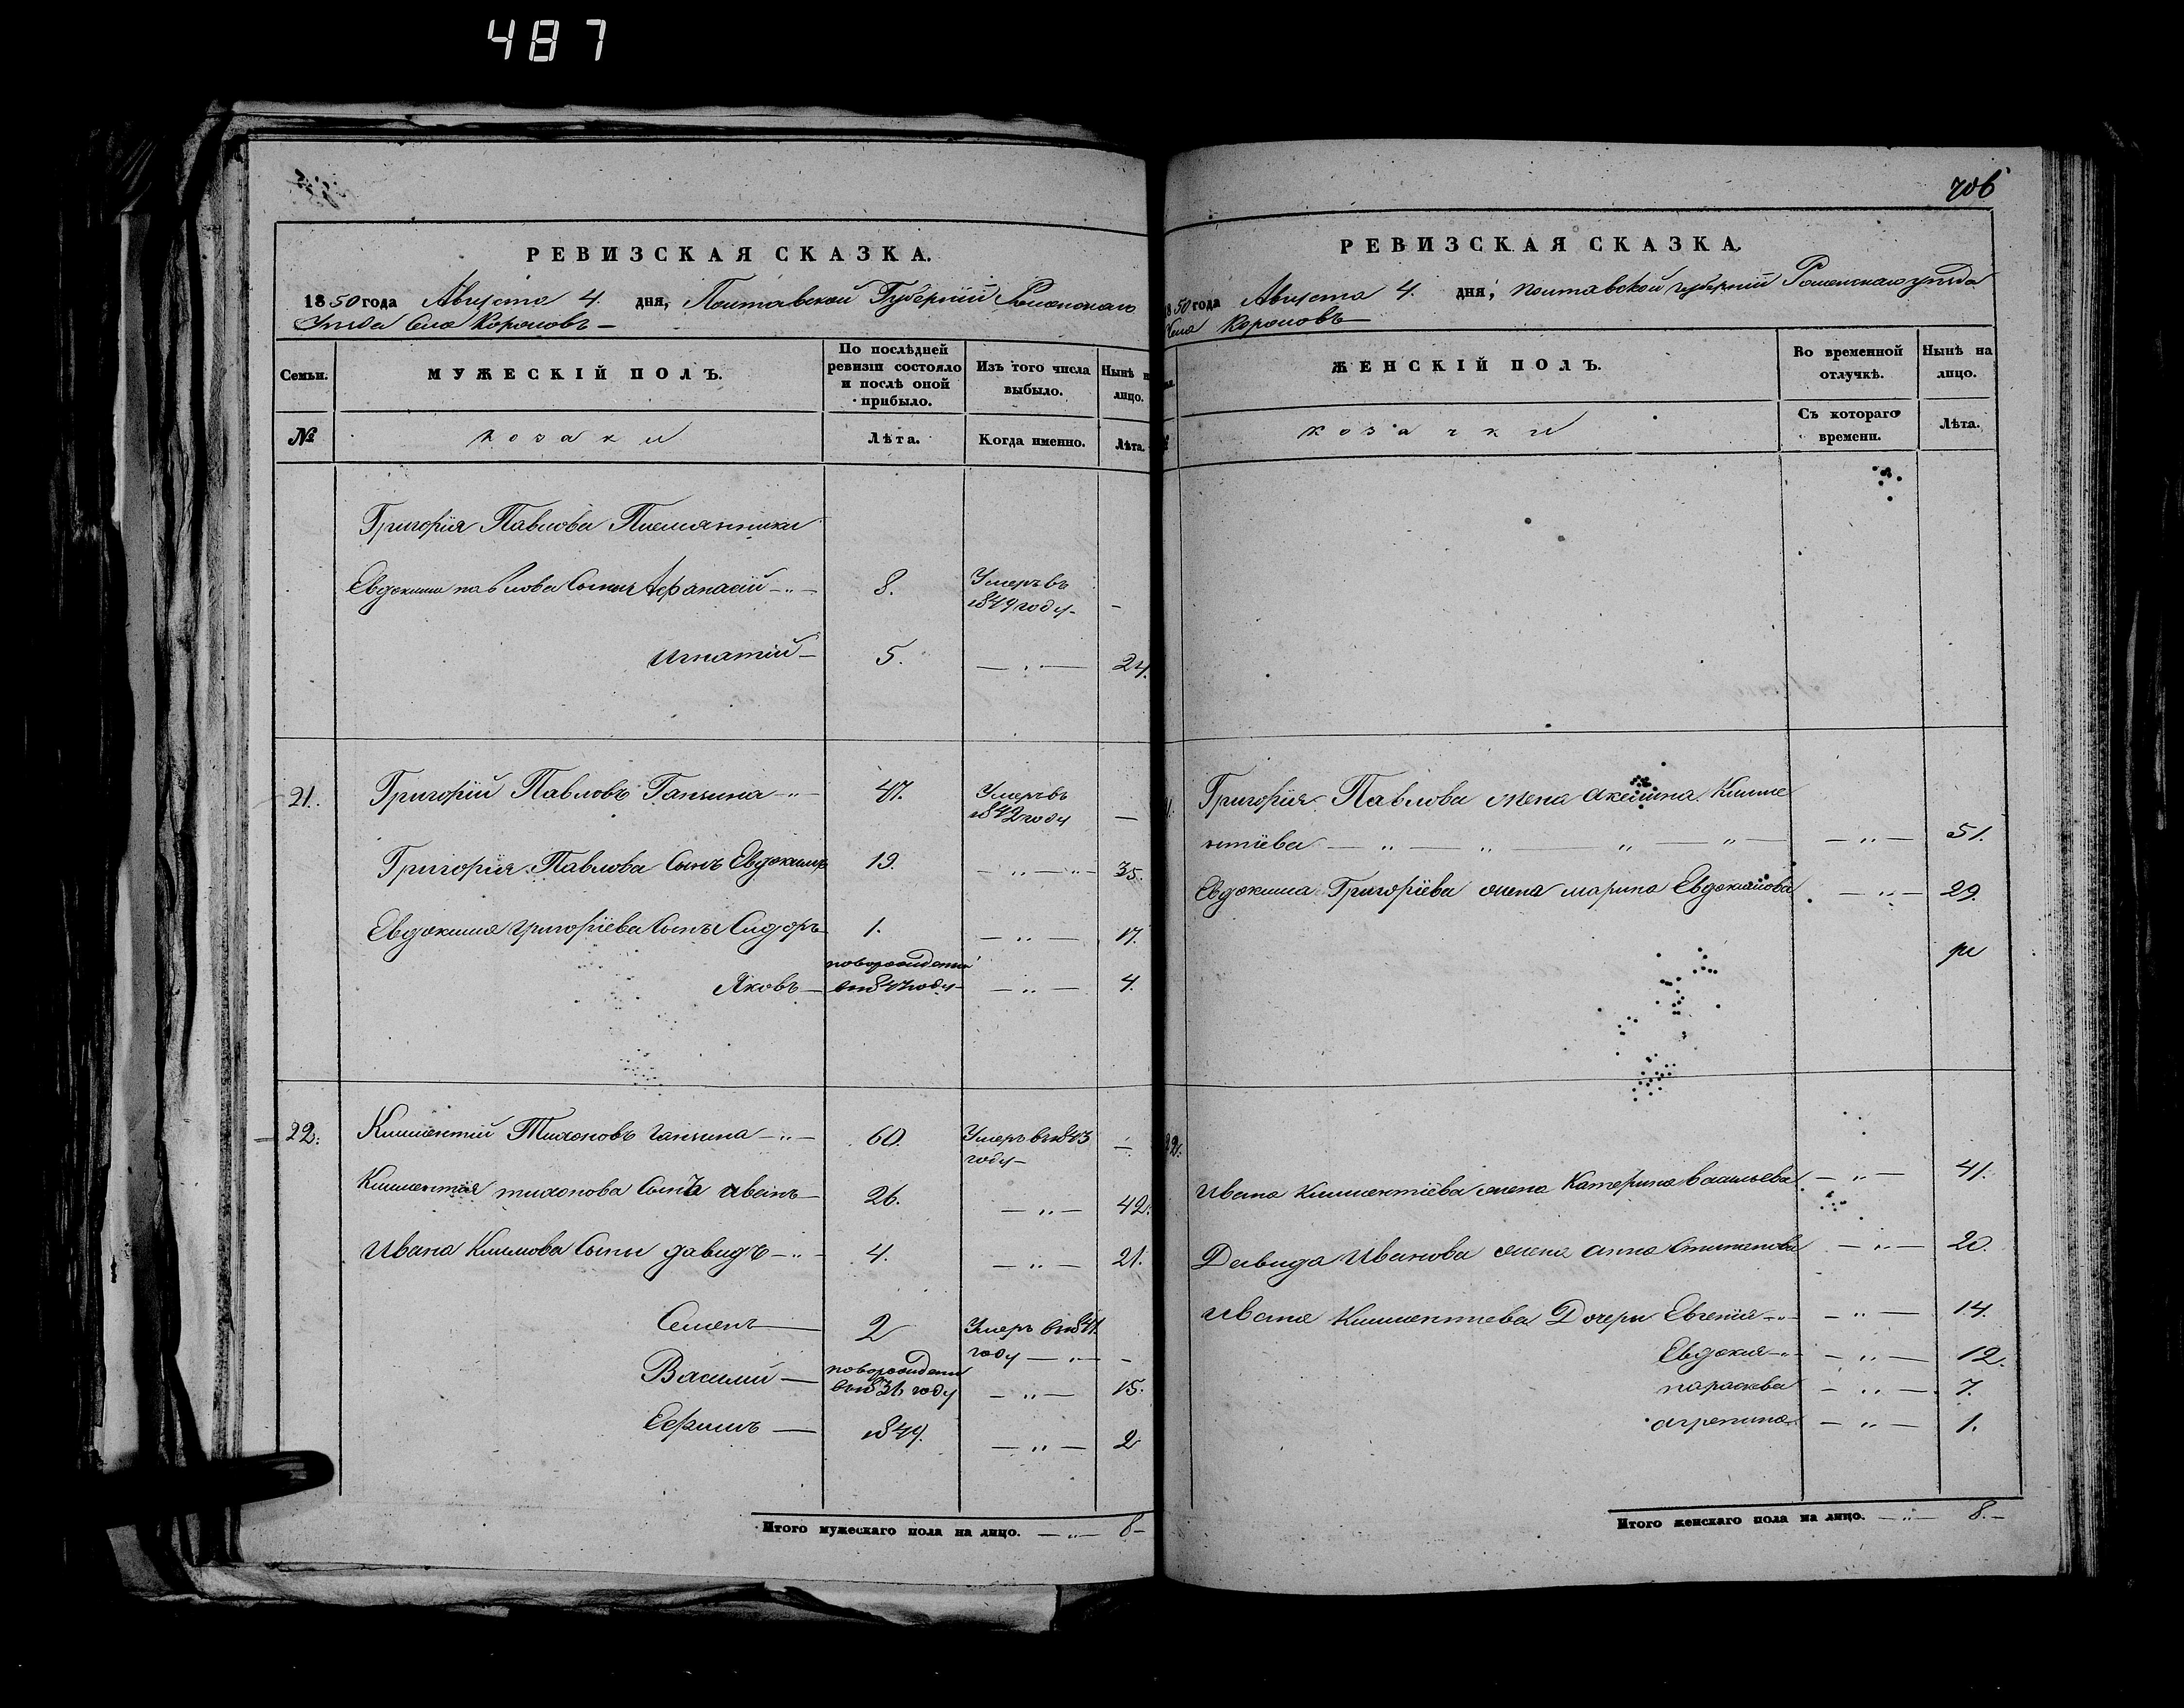 487
РЕВИЗСКАЯ СКАЗКА.
1850 года Августа 4. дня, Полтавской Губернiи Роменскаго
Уезда Села Корововъ
Семьи.
МУЖЕСКIЙ ПОЛЪ.
По послѣдней ревизiи состояло и послѣ оной прибыло.
Изъ того числа выбыло.
Нынѣ н лицо.
№
козаки
Лѣта.
Когда именно.
Лѣта.
Григорiя Павлова Племянники
Евдокима павлова Сыны Афанасiй 8. Умеръ въ
1849 году
Игнатiй 5. 24.
21. Григорiй Павловъ Ганзина 47. Умеръ въ
1842 году
Григорiя Павлова Сынъ Евдокимъ 19. 35.
Евдокима Григорiева Сыны Сидоръ 1. 17.
новорожденный
Яковъ в 1847 году 4.
22. Климентiй Тихоновъ Ганзина 60. Умеръ въ 1843
году
Климентiя тихонова Сынъ иванъ 26. 42.
Ивана Климова Сыны давидъ 4. 21.
Семенъ 2 Умеръ въ 1841
году
Василий новорожденный
15.
Ефимъ 1849. 2
Итого мужескаго пола на лицо. 8
706
РЕВИЗСКАЯ СКАЗКА.
1850 года Августа 4. дня, полтавской губернiи Роменскаго уезда
Села Корововъ
ЖЕНСКIЙ ПОЛЪ.
Во временной отлучкѣ.
Нынѣ на лицо.
козачки
Съ котораго времени.
Лѣта.
Григорiя Павлова жена Акелина Климе
нтiева 51.
Евдокима Григорiева жена марина Евдокимова 29.
22.
Ивана Климентiева жена Катерина васильева 41.
Давида Иванова жена анна 20.
Ивана Климентиева Дочери Евгенiя 14.
Евдокия 12.
параскева 7.
агрепина 1.
Итого женскаго пола на лицо. 8.